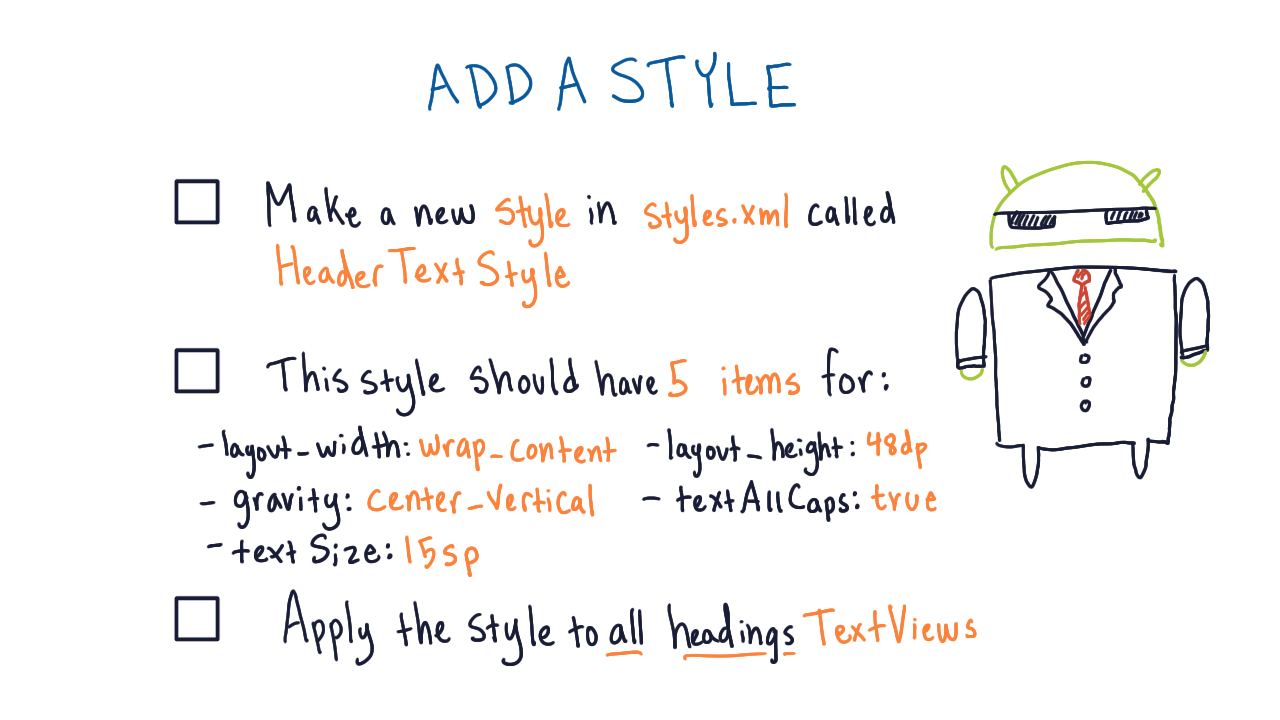 ADD A STYLE
Make a new style in styles.xml called
HeaderTextStyle
This style should have 5 items for:
- layout_width: wrap_content - layout_height: 48dp
- gravity: center_vertical - textAllCaps: true
- textSize: 15sp
Apply the style to all headings TextViews